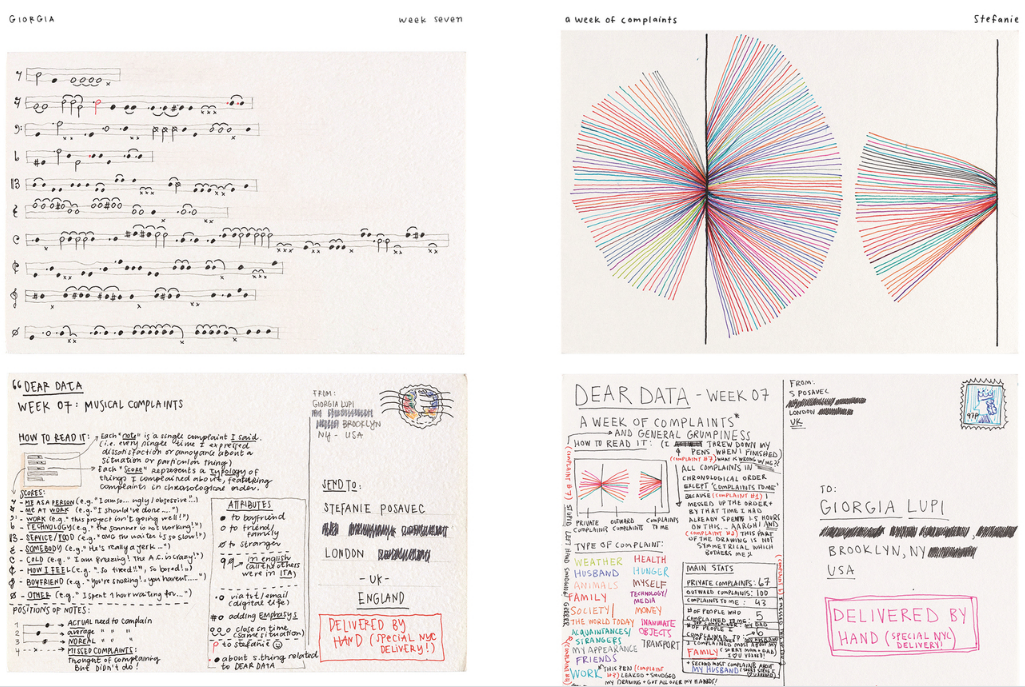 GIORGIA
week seven
a week of complaints
Stefanie
" DEAR DATA
WEEK 07: MUSICAL COMPLAINTS
HOW TO READ IT:
Each "note" is a single complaint I said.
(i.e. every single time I expressed
dissatisfaction or annoyance about a
situation or particular thing)
Each "score" represents a typology of
things I complained about, featuring
complaints in chronological order.
SCORES:
ME AS A PERSON
ME AT WORK (e.g. "I should've done....")
WORK (e.g. "this project isn't going well!")
TECHNOLOGY (e.g. "the scanner is not working!")
SERVICE/FOOD (e.g. "OMG the waiter is so slow!")
SOMEBODY (e.g. "He's really a jerk...")
COLD (e.g. "I am freezing! The A.C. is crazy!")
HOW I FEEL (e.g. "So tired!!", so bored!)
BOYFRIEND (e.g. "You're snoring!, you haven't....")
OTHER (e.g. "I spent 1 hour waiting for...")
POSITIONS OF NOTES:
1 ACTUAL need to complain
2 average " "
3 NO REAL " "
4 MISSED COMPLAINTS:
Thought of complaining
But DIDN'T do!
ATTRIBUTES
to boyfriend
to friend/
family
to stranger
in english
(all the others
were in ITA)
via txt/email
(digital life)
adding EMPHASYS
close in time
(same situation)
to Stefanie
about s.thing related
to DEAR DATA
FROM:
GIORGIA LUPI
BROOKLYN
NY - USA
SEND TO:
STEFANIE POSAVEC
LONDON
-UK-
ENGLAND
DELIVERED BY
HAND (SPECIAL NYC
DELIVERY!)
DEAR DATA - WEEK 07
A WEEK OF COMPLAINTS*
AND GENERAL GRUMPINESS
HOW TO READ IT:
THREW DOWN MY
PENS, WHEN I FINISHED
(COMPLAINT #7)
ALL COMPLAINTS IN
CHRONOLOGICAL ORDER
EXCEPT 'COMPLAINTS TO ME'
BECAUSE (COMPLAINT #1) I
MESSED UP THE ORDER +
BY THAT TIME I HAD
ALREADY SPENT 1.5 HOURS
ON THIS... AARGH! AND
THIS PART
OF THE DRAWING IS NOT
SYMMETRICAL WHICH
BOTHERS ME
PRIVATE COMPLAINTS
OUTWARD COMPLAINTS
COMPLAINTS TO ME
TYPE OF COMPLAINT:
WEATHER
HUSBAND
ANIMALS
FAMILY
SOCIETY/
THE WORLD TODAY
ACQUAINTANCES/
STRANGERS
MY APPEARANCE
FRIENDS
WORK
HEALTH
HUNGER
MYSELF
TECHNOLOGY/
MEDIA
MONEY
INANIMATE
OBJECTS
TRANSPORT
MAIN STATS
PRIVATE COMPLAINTS: 67
OUTWARD COMPLAINTS: 100
COMPLAINTS TO ME: 43
# OF PEOPLE WHO
COMPLAINED TO ME: 5
FAMILY
MY HUSBAND
THIS PEN (COMPLAINT
LEAKED + SMUDGED
MY DRAWING + GOT ALL OVER MY HANDS!
FROM:
S POSAVEC
LONDON
UK
97P
TO:
GIORGIA LUPI
BROOKLYN, NY
USA
DELIVERED BY
HAND (SPECIAL NYC
DELIVERY!)